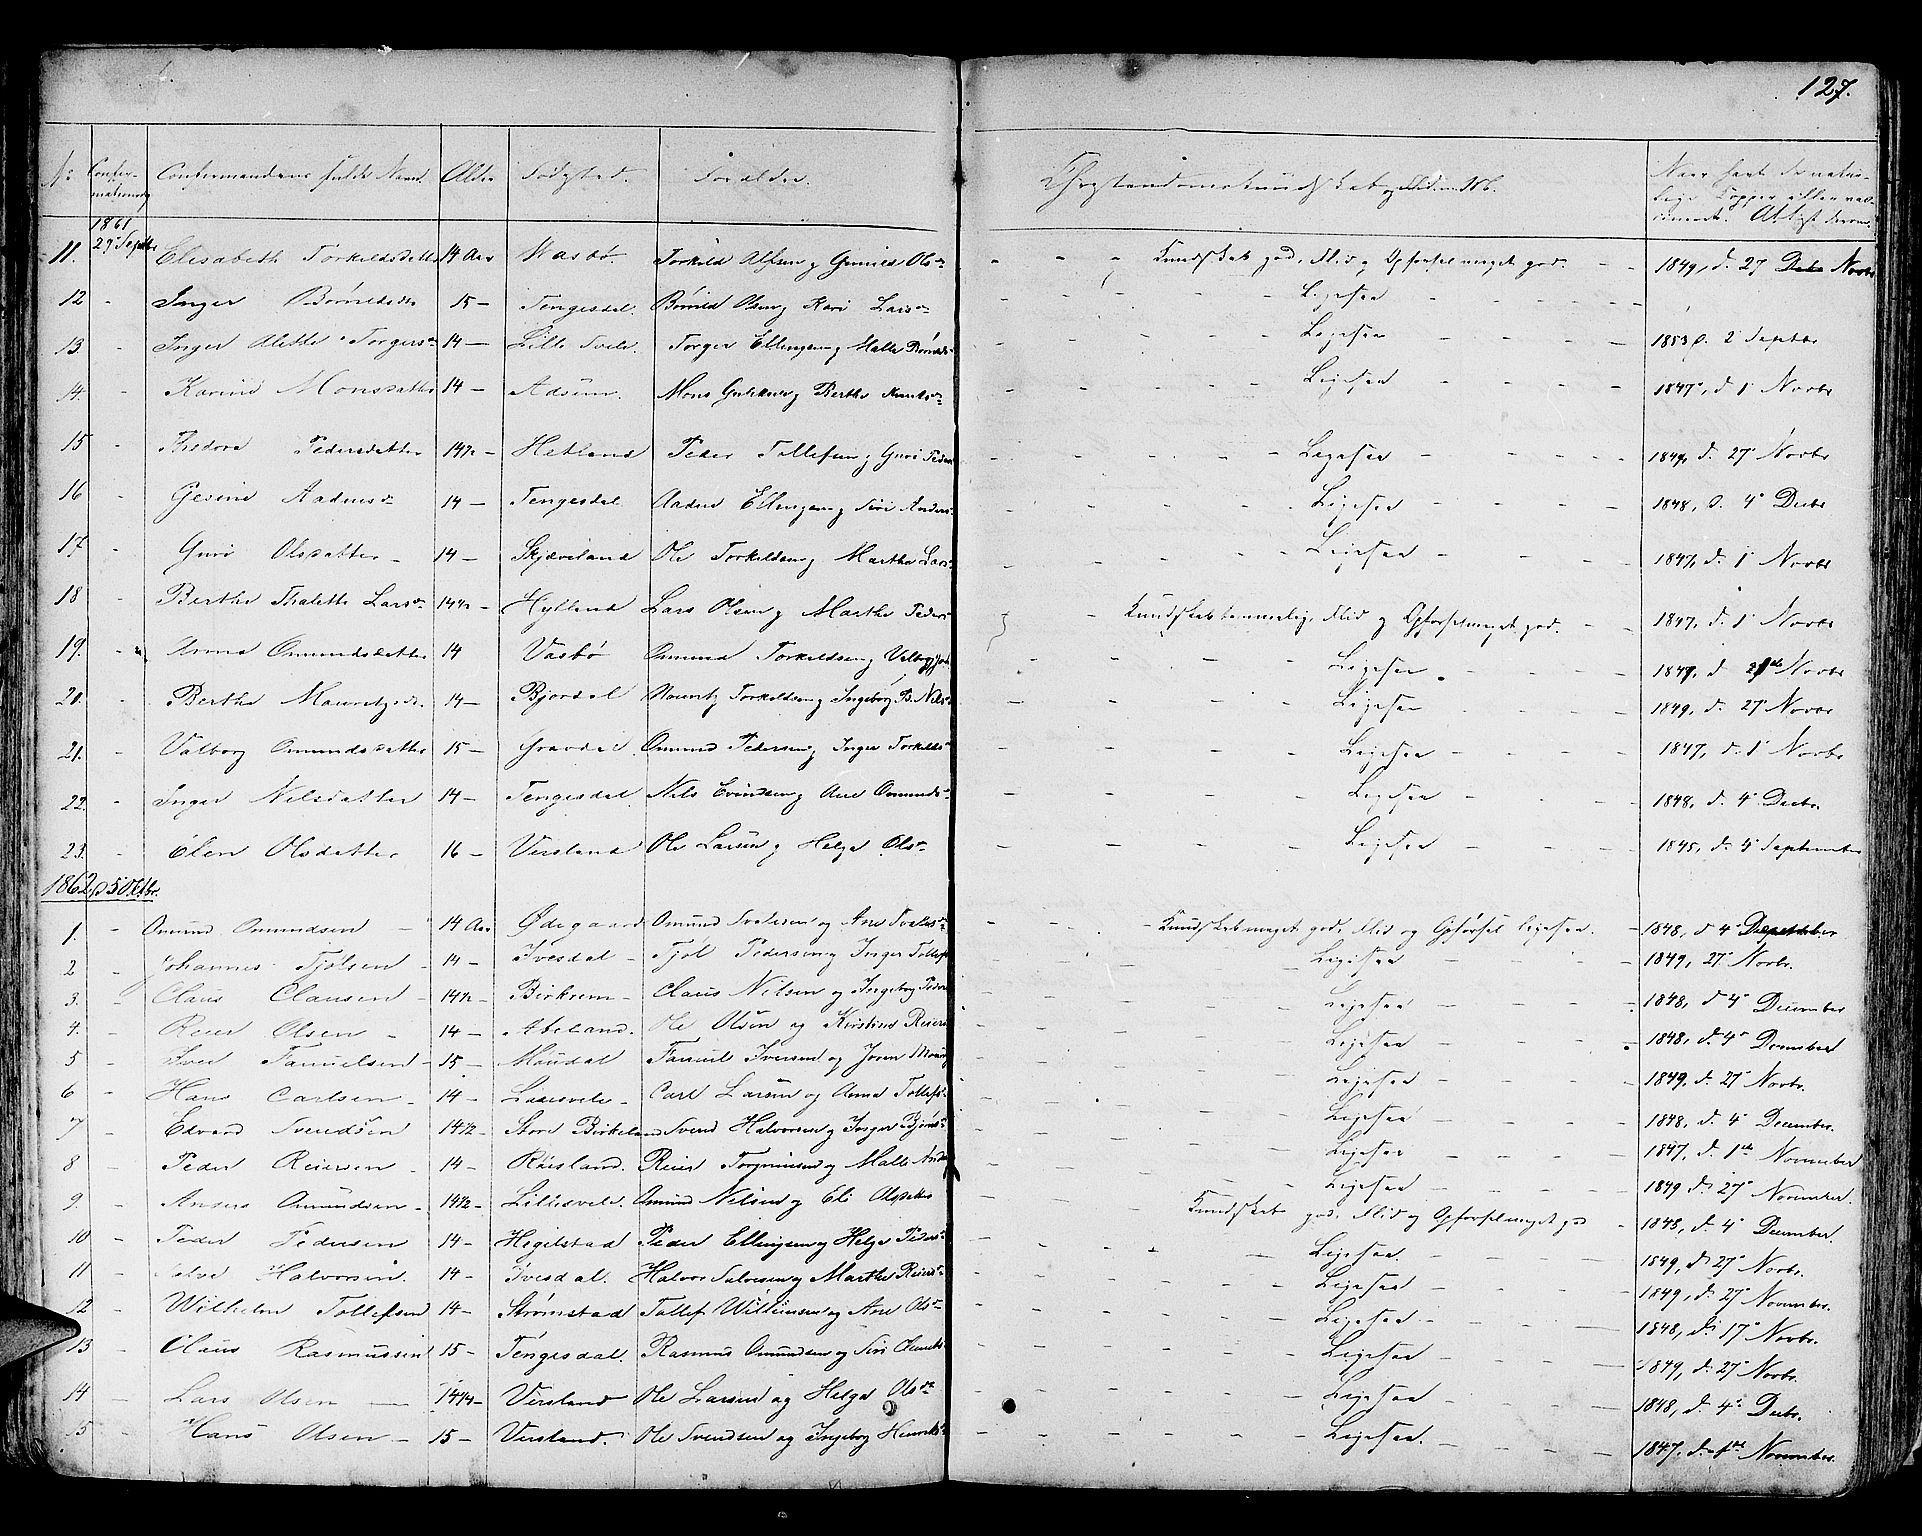 127.
No Confir- Confirmandens fulde Navn. Alder Fødested. Forældre. Christendomskundskab og Naar havt de natur-
mationsdag lige Kopper eller vac-
1861
29 Septbr
11. Elisabeth Torkildsdatter 14 Aar Wasbø. Torkild Alfsen og Gunild Ols- - - - Kundskab god, Flid og Opførsel meget god. - - 1849, d. 27 Novbr
12 - Inger 15 - Tengesdal. Olsen og Kari Lars- - - - Ligesaa - - -
13. Inger Malene Torgers- 14 - Lille Svele. Torger Ellingsen og Malle - - - - Ligesaa - - - 1853 2 Septbr
14. - Karine Monsdatter 14 - Adsum. Mons og Berthe - - - - Ligesaa - - - 1847, d. 1 Novbr
15 - Thedora Pedersdatter 14½ - Hetland Peder Tollefsen og Guri Peders - - - Ligesaa - - - 1849, d. 27 Novbr
16 - Gesine Aadnes- 14 - Tengesdal Aadne Ellingsen og Siri Anders- - - - Ligesaa - - - 1848, d. 4 Decbr
17 - Guri Olsdatter - 14 - Skjæveland Ole Torkildsen og Marthe Lars- - - - Ligesaa - - - 1847, d. 1 Novbr
18 - Berthe Thalette Lars- 14½ - Hylland Lars Olsen og Marthe Peders - Kundskab temmelig, Flid og Opførsel meget god. - - 1847, d. 1 Novbr
19. - Anna Ommundsdatter 14 Vasbø Ommund Torkildsen og Valborg - - - Ligesaa - - - 1849, d. Novbr
20. - Berthe Mauritz- 14 - Bjordal Mauritz Torkildsen og Ingeborg B. Nils- - - - Ligesaa - - - 1849, d. 27 Novbr
21. - Valborg Omundsdatter 15 - Gravdal Omund Pedersen og Inger Torkilds- - - - Ligesaa - - - 1847, d. 1 Novbr
22. - Inger Nilsdatter 14 - Tengesdal Nils Evindsen og Ane Ommunds- - - - Ligesaa - - - 1848, d. 4 Decbr.
23. - Elen Olsdatter 16 - Versland Ole Larsen og Helga Ols- - - - Ligesaa - - - 1845, d. 4 September
1862, d 5 Octbr.
1. - Omund Omundsen - 14 Aar Ødegaard Omund Svalesen og Ane Svales- - - Kundskab meget god, Flid og Opførsel ligesaa. - 1848, d 4
2 - Johannes Tjølsen - 14 - Ivesdal - Tjøl Pedersen og Inger Tollefs - - - Ligesaa - - - 1849, 27 Novbr.
3. - Claus Clausen - 14½ - Birkrem - Claus Nilsen og Ingeborg Peders - - - Ligesaa - - - 1848, d 4 December
4. - Reier Olsen - 14 - Abeland. Ole Olsen og Kirstine Reiers - - - Ligesaa - - - 1848, d. 4 December
5 - Iver Tanuelsen - 15 - Maudal Tanuel Iversen og Joren - - - Ligesaa - - - 1849, d. 27 Novbr.
6 - Hans Carlsen - 14 - - Carl Larsen og Anna Tollefs- - - - Ligesaa - - - 1848, d. 4 December.
7 - Edvard Svendsen 14½ - Store Birkeland Svend Halvorsen og Inger - - - Ligesaa - - - 1847, d. 1 November
8 - Peder Reiersen - 14 - Røisland. Reier og Malle - - - Ligesaa - - - 1849 d. 27 November.
9. - Anders Omundsen - 14½ - Lillesvele. Omund Nilsen og Eli Olsdatter - Kundskab god, Flid og Opførsel meget god - 1848, d. 4 December.
10 - Peder Pedersen 14 - Hegelstad Peder Ellingsen og Helga Peders- - - - Ligesaa. - - - 1849, d 27 Novbr.
11 - Salve Halvorsen. 14 - Ivesdal. Halvor Salvesen og Marthe Reiers- - - - Ligesaa - - - 1849, d. 27 Novembr.
12 - Wilhelm Tollefsen 14 - Strømstad Tollef Willumsen og Ane Ols- - - - Ligesaa - - - 1848, d. 17 Novbr.
13 - Claus Rasmussen 15 - Tengesdal. Rasmus Omundsen og Siri - - - Ligesaa - - - 1849, d. 27 Novbr.
14 - Lars Olsen - 14¼ - Versland Ole Larsen og Helga Ols- - - - Ligesaa - - - 1848, d. 4 Decbr.
15 - Hans Olsen - 15 - Versland. Ole Svendsen og Ingeborg Henriks- - - - Ligesaa. - - - 1847, d. 1 November.